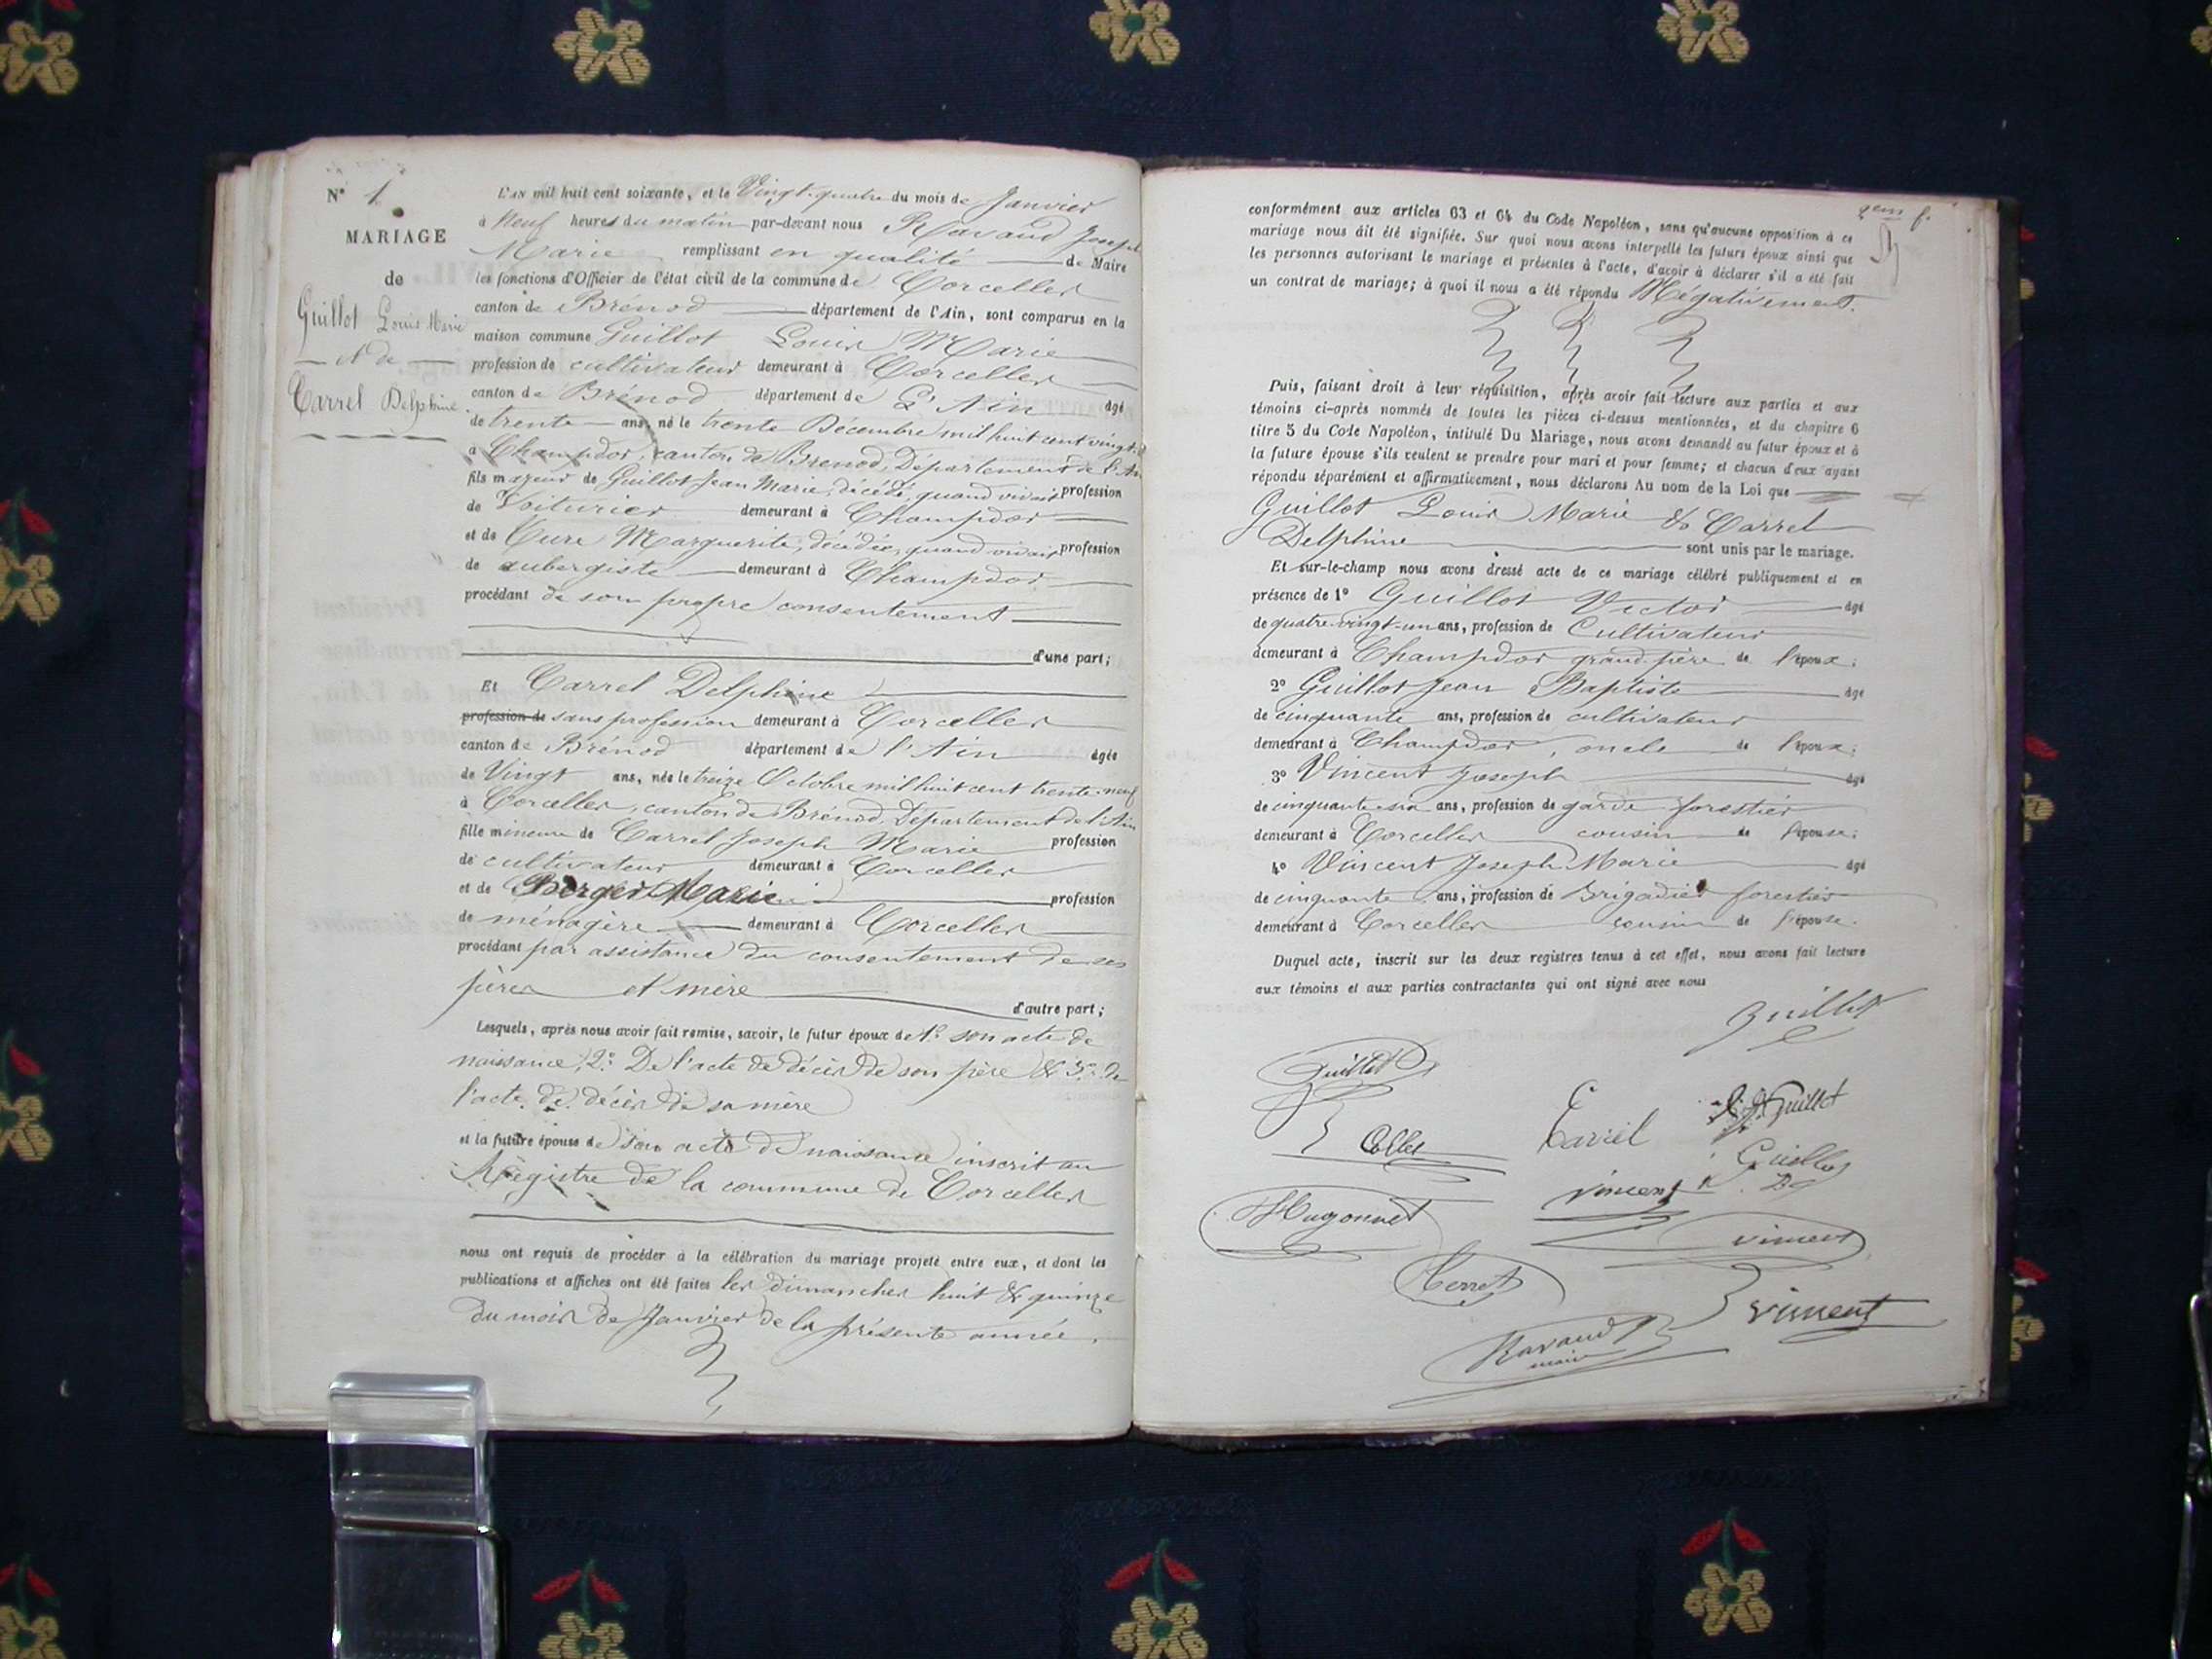 N° 1.
MARIAGE
de
Guillot Louis Marie
et de
Carrel Delphine
L'AN mil huit cent soixante, et le Vingt-quatre du mois de Janvier
à Neuf heures du matin par-devant nous Ravaud Joseph
Marie remplissant en qualité de Maire
les fonctions d'Officier de l'état civil de la commune de Corcelles
canton de Brénod département de l'Ain, sont comparus en la
maison commune Guillot Louis Marie
profession de cultivateur demeurant à Corcelles
canton de Brénod département de L'Ain âgé
de trente ans, né le trente Décembre mil huit cent vingt
à Champdor, canton de Brenod, Département de l'Ain
fils majeur de Guillot Jean Marie, décédé, quand vivait profession
de Voiturier demeurant à Champdor
et de Cure Marguerite, décédée, quand vivait profession
de aubergiste demeurant à Champdor
procédant de son propre consentement
d'une part;
Et Carrel Delphine
profession de sans profession demeurant à Corcelles
canton de Brénod département de l'Ain âgée
de Vingt ans, née le treize Octobre mil huit cent trente-neuf
à Corcelles, canton de Brénod, Département de l'Ain
fille mineure de Carrel Joseph Marie profession
de cultivateur demeurant à Corcelles
et de Berger Marie profession
de ménagère demeurant à Corcelles
procédant par assistance du consentement de ses
pères et mère
d'autre part;
Lesquels, après nous avoir fait remise, savoir, le futur époux de 1° son acte de
naissance, 2° De l'acte de décès de son père & 3° de
l'acte de décès de sa mère
et la future épouse de son acte de naissance inscrit au
Régistre de la commune de Corcelles
nous ont requis de procéder à la célébration du mariage projeté entre eux, et dont les
publications et affiches ont été faites les dimanches huit & quinze
du mois de Janvier de la présente année.
conformément aux articles 63 et 64 du Code Napoléon, sans qu'aucune opposition à ce
mariage nous ait été signifiée. Sur quoi nous avons interpellé les futurs époux ainsi que
les personnes autorisant le mariage et présentes à l'acte, d'avoir à déclarer s'il a été fait
un contrat de mariage; à quoi il nous a été répondu Négativement.
Puis, faisant droit à leur réquisition, après avoir fait lecture aux parties et aux
témoins ci-après nommés de toutes les pièces ci-dessus mentionnées, et du chapitre 6
titre 5 du Code Napoléon, intitulé Du Mariage, nous avons demandé au futur époux et à
la future épouse s'ils veulent se prendre pour mari et pour femme; et chacun d'eux ayant
répondu séparément et affirmativement, nous déclarons Au nom de la Loi que
Guillot Louis Marie & Carrel
Delphine sont unis par le mariage.
Et sur-le-champ nous avons dressé acte de ce mariage célébré publiquement et en
présence de 1° Guillot Victor âgé
de quatre-vingt-un ans, profession de Cultivateur
demeurant à Champdor grand-père de l'époux;
2° Guillot Jean Baptiste âgé
de cinquante ans, profession de cultivateur
demeurant à Champdor, oncle de l'époux;
3° Vincent Joseph âgé
de cinquante-six ans, profession de garde forestier
demeurant à Corcelles cousin de l'épouse;
4° Vincent Joseph Marie âgé
de cinquante ans, profession de Brigadier forestier
demeurant à Corcelles cousin de l'épouse.
Duquel acte, inscrit sur les deux registres tenus à cet effet, nous avons fait lecture
aux témoins et aux parties contractantes qui ont signé avec nous
Guillot
Guillot
Guillot
Collet
Carrel
Guillot
Vincent
Hugonnet
Vincent
Perret
Vincent
Ravaud
maire